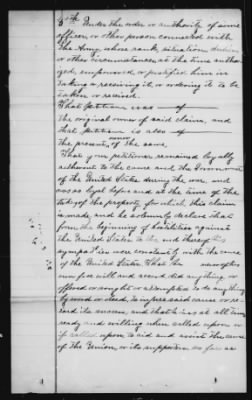 5th Under the order or authority of some
officer, or other person connected with
the Army, whose rank, situation, duties
or other circumstances, at the time author-
ized, empowered or justified him in
taking or receiving it, or ordering it to be
taken or received.
That Petitioner was of
the original owner of said claim, and
that petitioner is also of
the present owner of the same.
That your petitioner remained loyally
adherent to the cause and the Government
of the United States during the war, and
was so loyal before and at the time of the
taking of the property for which this claim
is made, and he solemnly declares that
from the beginning of hostilities against
the United States to the end thereof his
sympathies were constantly with the cause
of the United States. That he never of his
own free will and accord did anything or
offered or sought or attempted to do anything
by word or deed, to injure said cause or re-
tard its success, and that he was at all times
ready and willing when called upon or
if called upon, to aid and assist the cause
of the Union, or its supporters, so far as